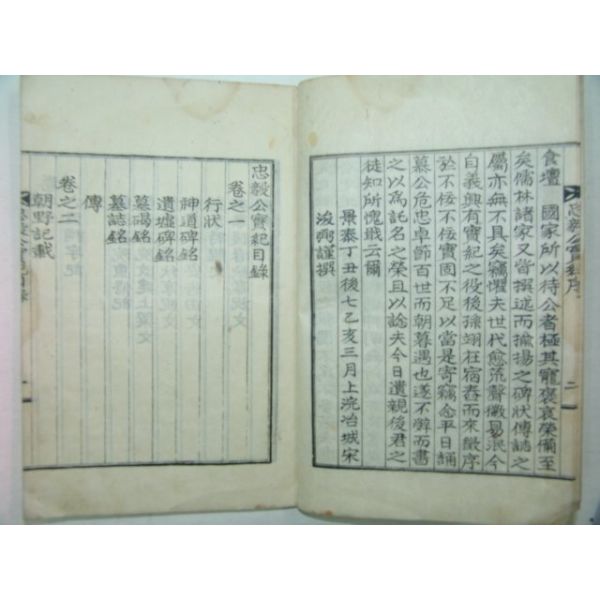 食壇 國家所以待公者極其寵褒哀榮備至
矣儒林諸家又皆撰述而揄揚之碑狀傳誌之
屬亦無不具矣竊懼夫世代愈荒聲徽易泯今
自義興有實紀之役後孫翊在宿舂而來徵序
不佞不佞實固不足以當是寄竊念平日誦
慕公危忠卓節百世而朝暮遇也遂不辭而書
之以為託名之榮且以諗夫今日遺親後君之
徒知所愧戢云爾
景泰丁丑後七乙亥三月上浣冶城宋
浚弼謹撰
忠毅公實紀序
二
忠毅公實紀目錄
卷之一
行狀
神道碑銘
遺墟碑銘
墓碣銘
墓誌銘
傳
卷之二
朝野記載
忠毅公實紀目錄